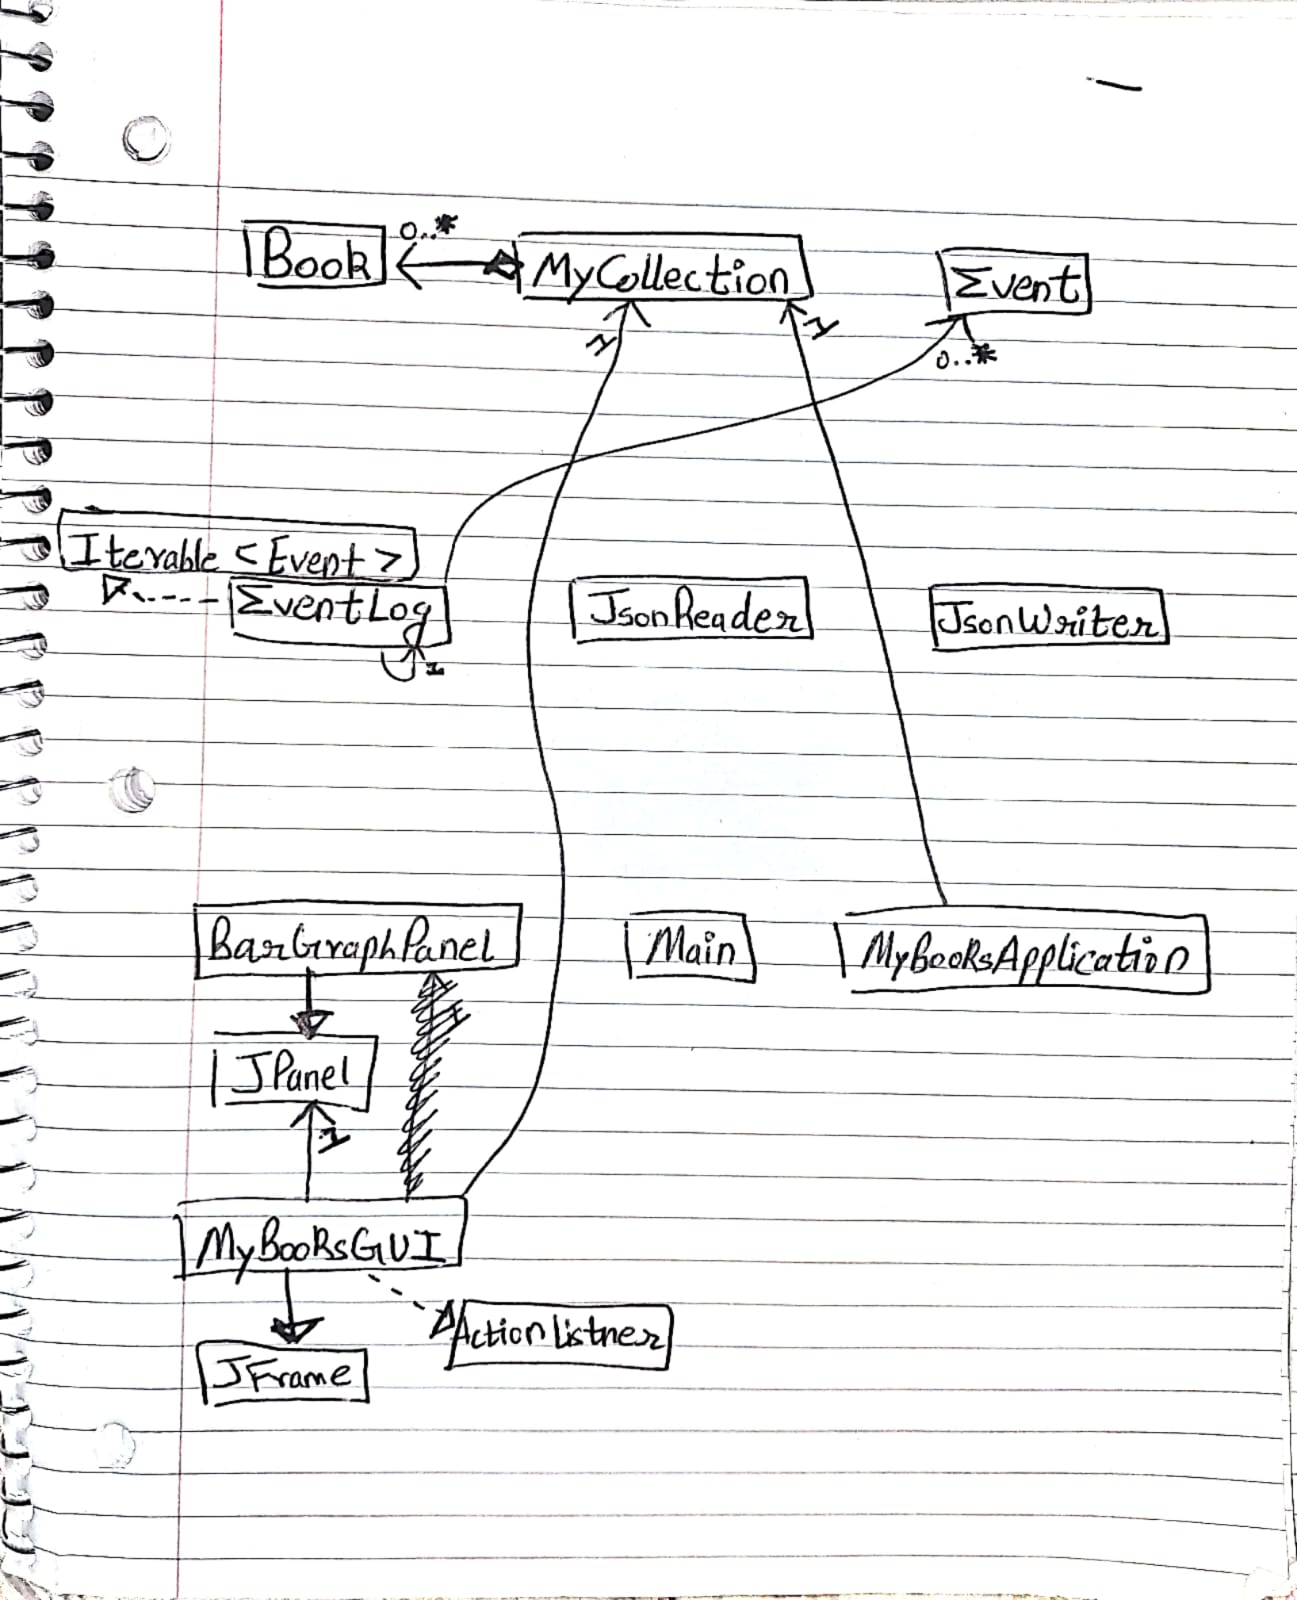 Book
0..*
MyCollection
Event
1
1
0..*
Iterable <Event>
EventLog
1
JsonReader
JsonWriter
BarGraphPanel
Main
MyBooksApplication
JPanel
1
MyBooksGUI
ActionListner
JFrame